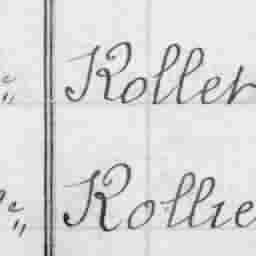 Koller
Kollie